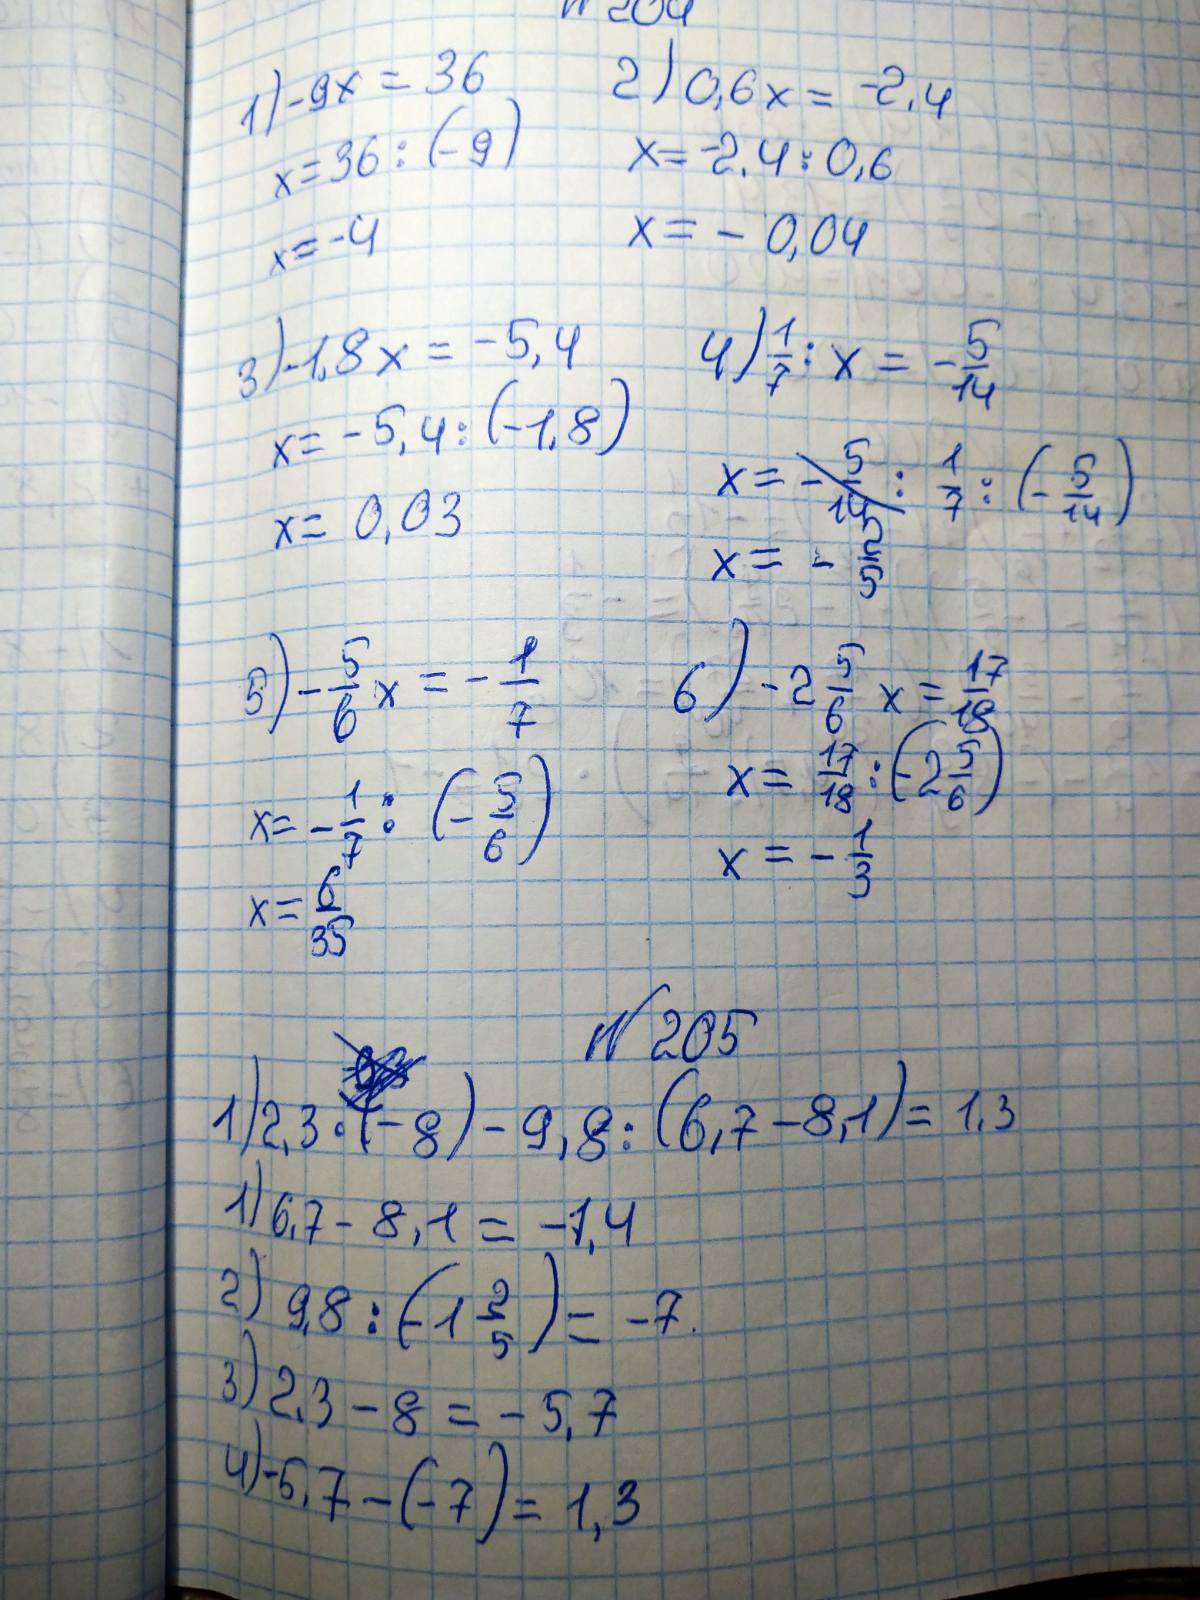 № 204
1) -9x = 36
x = 36 : (-9)
x = -4
2) 0,6x = -2,4
x = -2,4 : 0,6
x = - 0,04
3) -1,8x = -5,4
x = -5,4 : (-1,8)
x = 0,03
4) 1/7 : x = -5/14
x = 1/7 : (-5/14)
x = -2/5
5) -5/6 x = -1/7
x = -1/7 : (-5/6)
x = 6/35
6) -2 5/6 x = 17/18
x = 17/18 : (-2 5/6)
x = -1/3
№ 205
1) 2,3 · (-8) - 9,8 : (6,7 - 8,1) = 1,3
1) 6,7 - 8,1 = -1,4
2) 9,8 : (-1 2/5) = -7.
3) 2,3 - 8 = -5,7
4) -5,7 - (-7) = 1,3